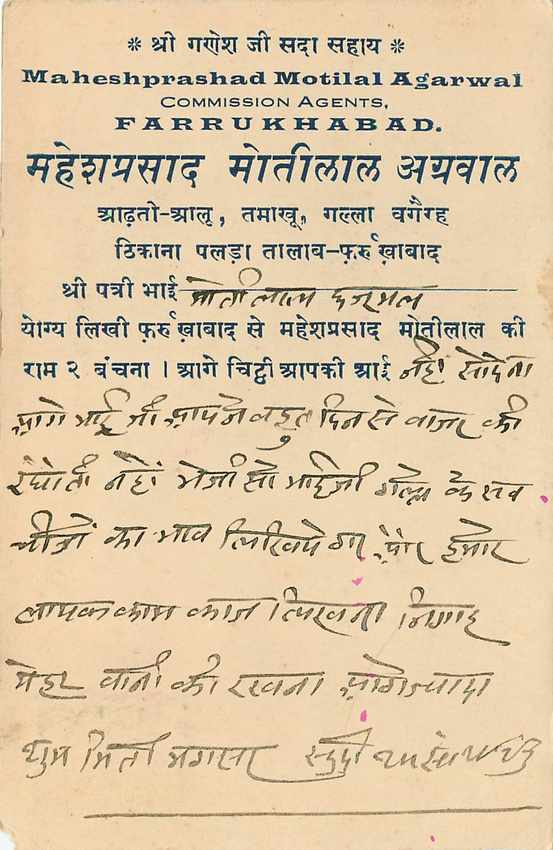 * श्री गणेश जी सदा सहाय *
Maheshprashad Motilal Agarwal
COMMISSION AGENTS,
FARRUKHABAD.
महेशप्रसाद मोतीलाल अग्रवाल
आढ़ती-आलू, तमाखू, गल्ला वग़ैरह
ठिकाना पलड़ा तालाब-फ़र्रुख़ाबाद
श्री पत्री भाई मोतीलाल
योग्य लिखी फ़र्रुख़ाबाद से महेशप्रसाद मोतीलाल की
राम २ बंचना । आगे चिट्ठी आपकी आई नहीं सो देना
आगे भाई जी आपने बहुत दिन से बाजार की
नहीं भेजी सो भाईजी गल्ला के सब
चीजों का भाव लिखियेगा और हमारे
लायक काम काज लिखना निगाह
मेहरबानी की रखना आगे ज्यादा
शुभ मिती मगसर सुदी